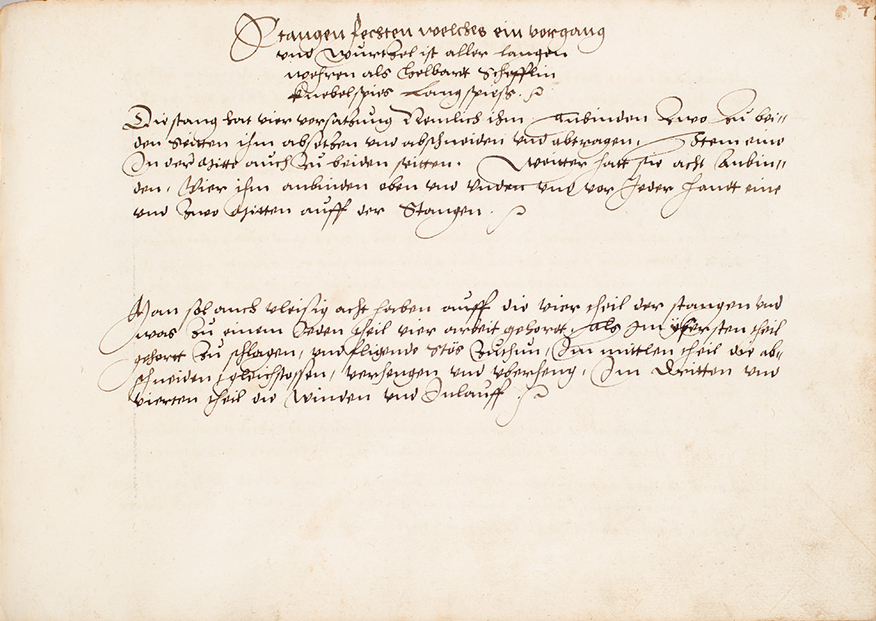 7
Stangen fechten welches ein vorgang
vnd wurtzel ist aller langen
wehren als Helbardt Schefflin
Knebelspies Langspiess.
Die stang hat vier versatzung Nemlich ihm anbinden zwo zu bei=
den seitten ihm absetzen vnd abschneiden vnd abtragen, Item eine
In der Mitte auch zu beiden seitten. Weitter hatt sie acht Anbin=
den, Vier ihm anbinden oben vnd vnden vnd vor Jeder handt eine
vnd zwo Mitten auff der Stangen.
Man sol auch vleisig acht haben auff die vier theil der stangen vnd
was zu einem Jeden theil vier arbeit gehördt, als Im ersten theil
gehortt zu schlagen, vnd fligende stös zuthun, Im mittlen theil die ab=
schneiden, gleichstossen, verhengen vnd vberheng, Im Dritten vnd
vierten theil die Winden vnd Inlauff.